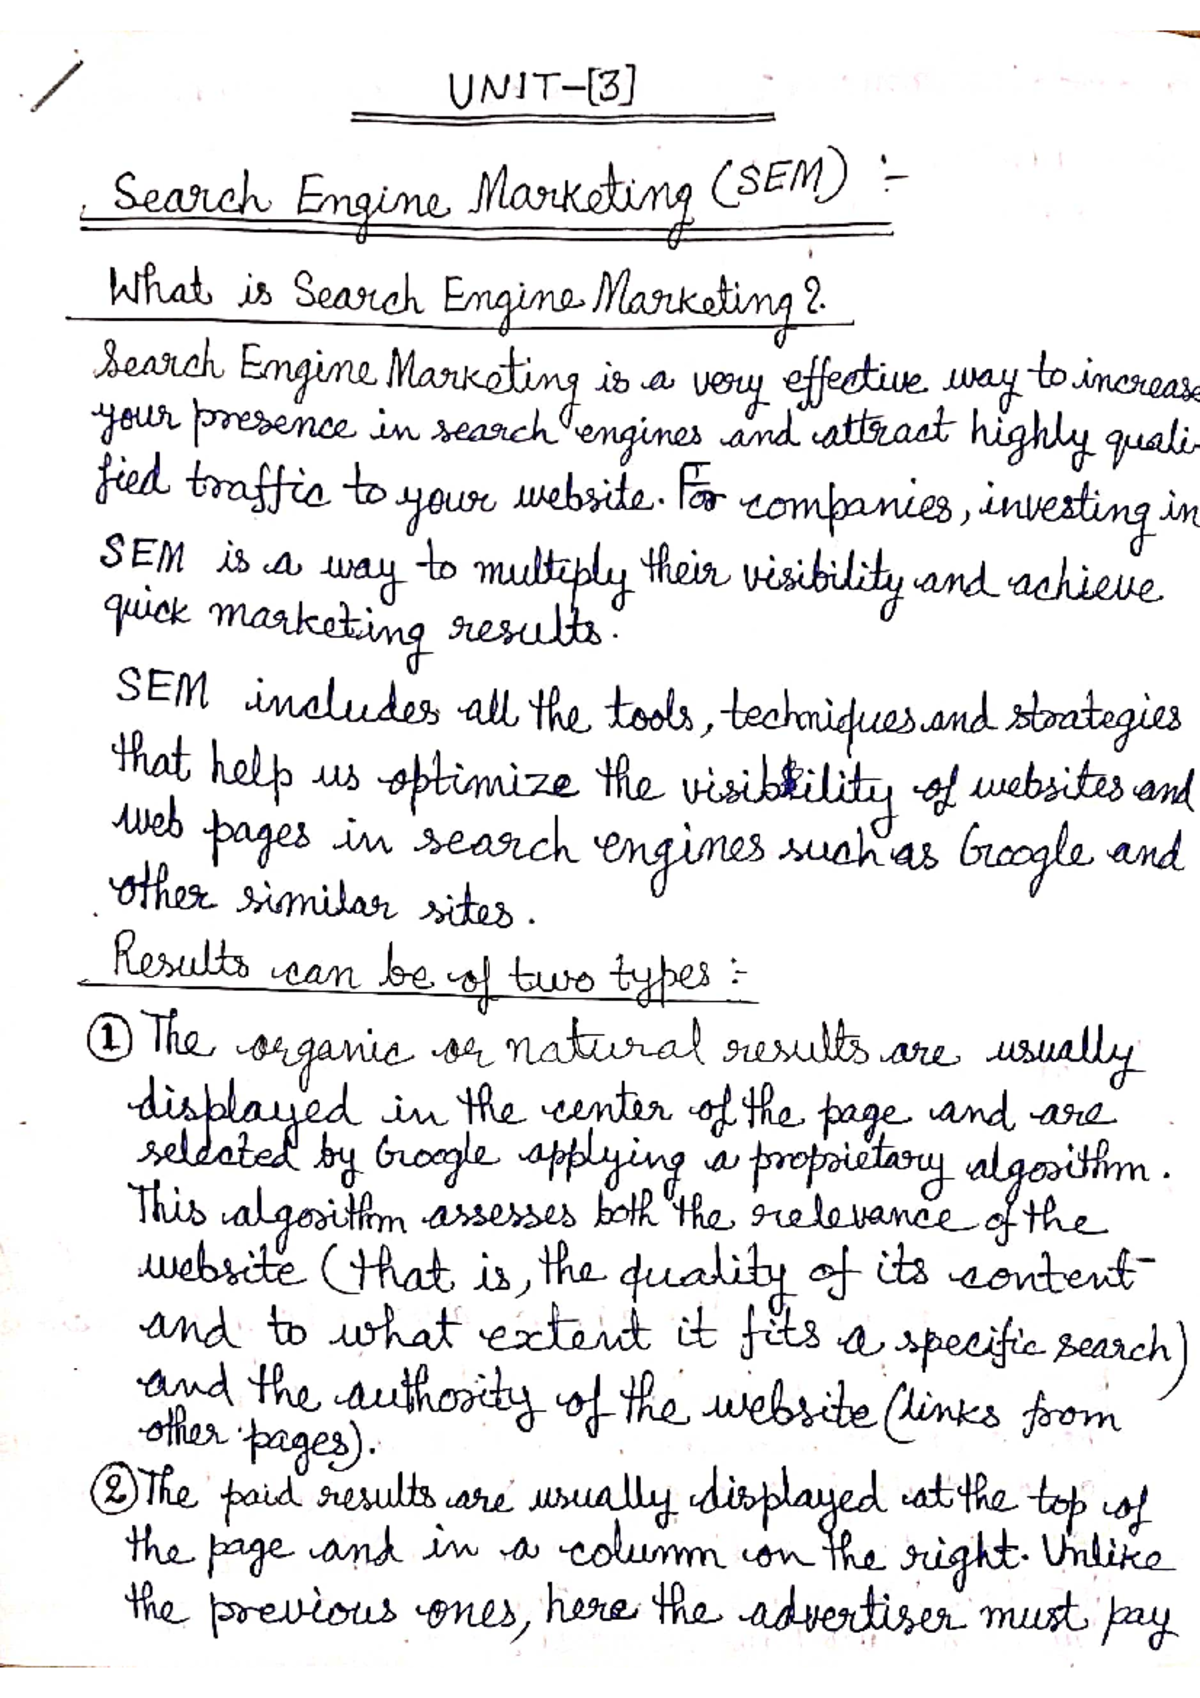 UNIT-[3]
Search Engine Marketing (SEM) :-
What is Search Engine Marketing?
Search Engine Marketing is a very effective way to increase
your presence in search engines and attract highly quali-
fied traffic to your website. For companies, investing in
SEM is a way to multiply their visibility and achieve
quick marketing results.
SEM includes all the tools, techniques and strategies
that help us optimize the visibility of websites and
web pages in search engines such as Google and
other similar sites.
Results can be of two types :-
① The organic or natural results are usually
displayed in the center of the page and are
selected by Google applying a proprietary algorithm.
This algorithm assesses both the relevance of the
website (that is, the quality of its content
and to what extent it fits a specific search)
and the authority of the website (links from
other pages).
② The paid results are usually displayed at the top of
the page and in a column on the right. Unlike
the previous ones, here the advertiser must pay